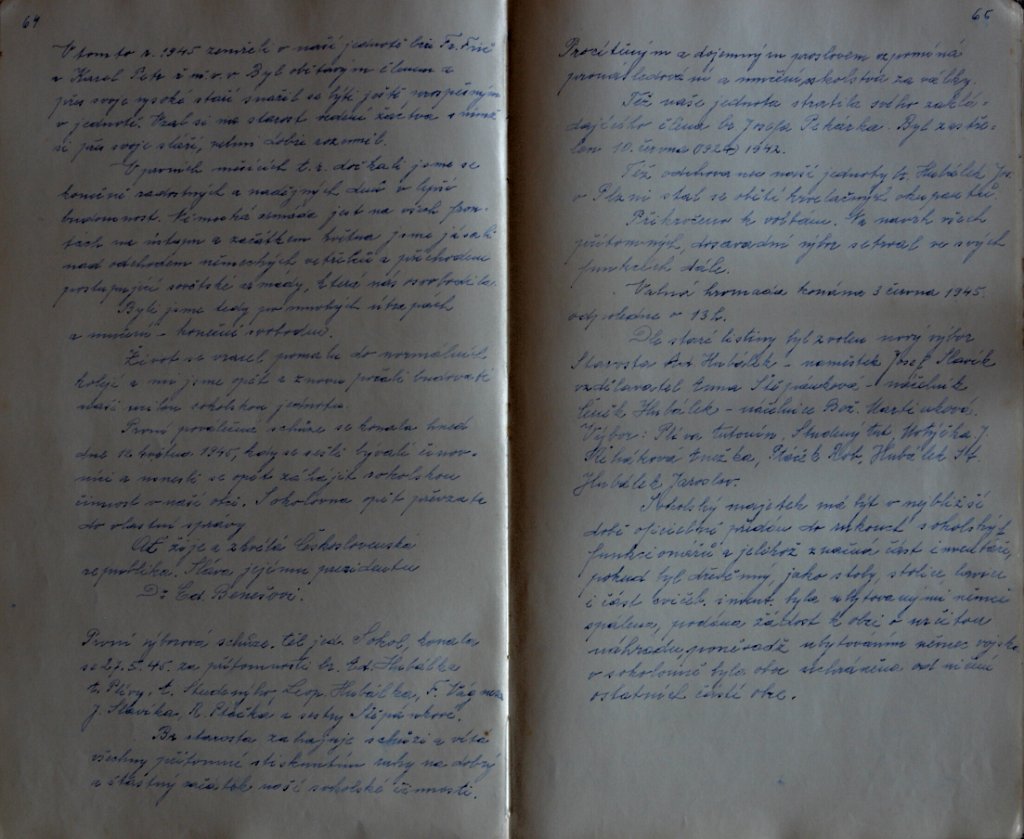 64
V tomto r. 1945 zemřeli v naší jednotě br. Fr. Frič
a Karel Petr ř. m. v. v. Byl obětavým členem a
přes svoje vysoké stáří snažil se býti ještě prospěšným
v jednotě. Vzal si na starost vedení žactva s nímž
si přes svoje stáří, velmi dobře rozuměl.
V prvních měsících t. r. dočkali jsme se
konečně radostných a nadějných dnů v lepší
budoucnost. Německá armáda jest na všech fron-
tách na ústupu a začátkem května jsme jásali
nad odchodem německých vetřelců a příchodem
postupující sovětské armády, která nás osvobodila.
Byli jsme tedy po mnohých útrapách
a mučení - konečně svobodni.
Život se vracel pomalu do normálních
kolejí a my jsme opět a znovu počali budovati
naší milou sokolskou jednotu.
První poválečná schůze se konala hned
dne 12. května 1945, kdy se sešli bývalí činov-
níci a usnesli se opět zahájit sokolskou
činnost v naší obci. Sokolovna opět převzata
do vlastní správy.
Ať žije a zkvétá Československá
republika. Sláva jejímu presidentu
Dr. Ed. Benešovi.
První výborová schůze těl. jed. Sokol, konala
se 27. 5. 45. za přítomnosti br. Ed. Hubálka
t. Plívy, A. Studenýho, Leop. Hubálka, F. Vágnera
J. Slavíka, R. Ptáčka a sestry Štěpánkové.
Br. starosta zahajuje schůzi a vítá
všechny přítomné stisknutím ruky na dobrý
a šťastný začátek naší sokolské činnosti.
65
Procítěným a dojemným proslovem vzpomíná
pronásledování a mučení sokolstva za války.
Též naše jednota ztratila svého zaklá-
dajícího člena br. Josefa Pekárka. Byl zastře-
len 10. června 1942.
Též odchovanec naší jednoty br. Hubálek Jos.
v Plzni stal se obětí krvelačných okupantů.
Přikročeno k volbám. Na návrh všech
přítomných, dosavadní výbor setrval ve svých
funkcích dále.
Valná hromada konána 3 června 1945.
odpoledne v 13 h.
Dle staré listiny byl zvolen nový výbor
Starosta Ed. Hubálek - náměstek Josef Slavík
vzdělavatel Anna Štěpánková - náčelník
Čeněk Hubálek - náčelnice Bož. Martinková.
Výbor: Plíva Antonín, Studený Ant, Motyčka J.
Anežka, Ptáček Rob., Hubálek St.
Hubálek Jaroslav.
Sokolský majetek má být v nejbližší
době oficielně předán do rukou sokolských
funkcionářů a jelikož značná část inventáře,
pokud byl dřevěnný, jako stoly, stolice, lavice
i část cvičeb. invent. byla ubytovanými němci
spálena, podána žádost k obci o určitou
náhradu, poněvadž ubytováním němec. vojska
v sokolovně byla obec uchráněna od ničení
ostatních částí obce.